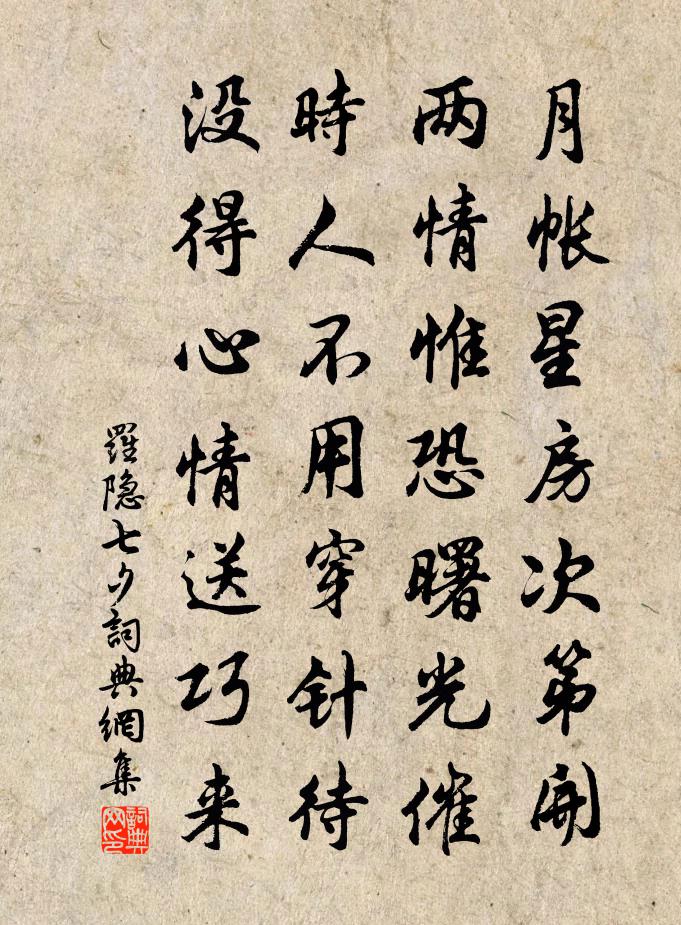 月帐星房次第开
两情惟恐曙光催
時人不用穿针待
没得心情送巧来
羅隐七夕詞典網集
詞典网印